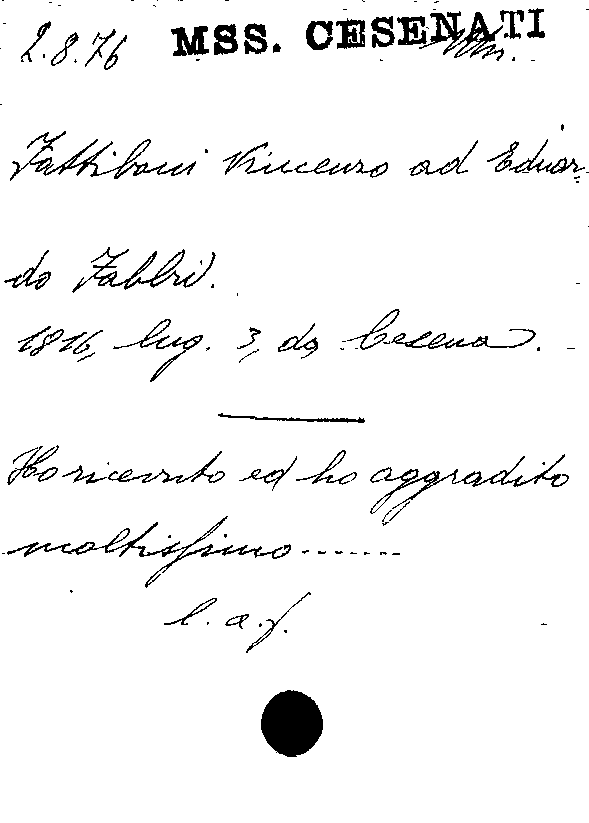 2.8.76 MSS. CESENATI
Fattiboni Vincenzo ad Eduar-
do Fabbri.
1816, lug. 3, da Cesena.
Ho ricevuto ed ho aggradito
moltissimo.......
l. a. f.